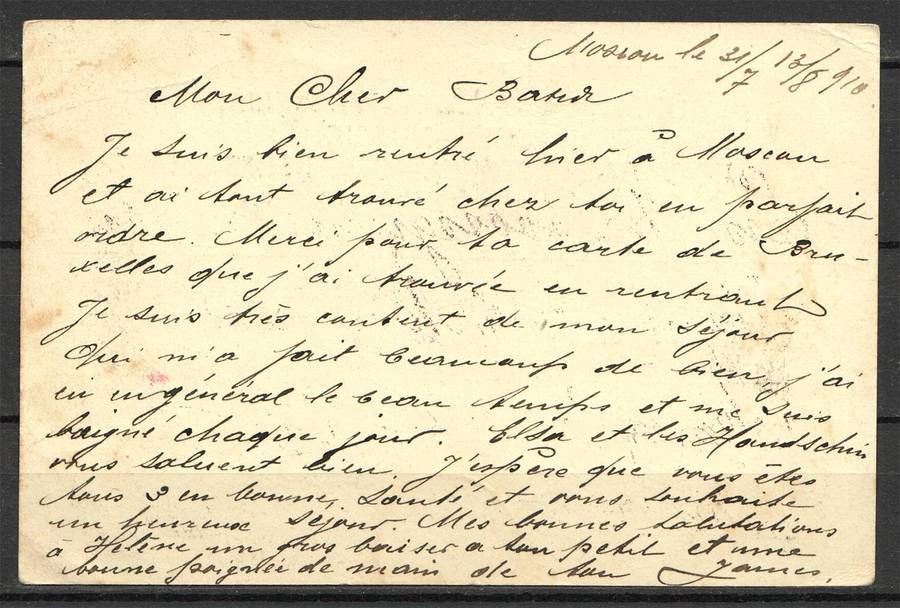 Moscou le 31/7 13/8 910.
Mon Cher
Je suis bien rentré hier à Moscou
et ai tout trouvé chez toi en parfait
ordre. Merci pour ta carte de Bru-
xelles que j'ai trouvée en rentrant
Je suis très content de mon séjour
qui m'a fait beaucoup de bien, j'ai
eu en général le beau temps et me suis
baigné chaque jour. Elsa et les Handschin
vous saluent bien. J'espère que vous êtes
tous 3 en bonne santé et vous souhaite
un heureux séjour. Mes bonnes salutations
à Hélène un gros baiser a ton petit et une
bonne poignée de main de ton James.